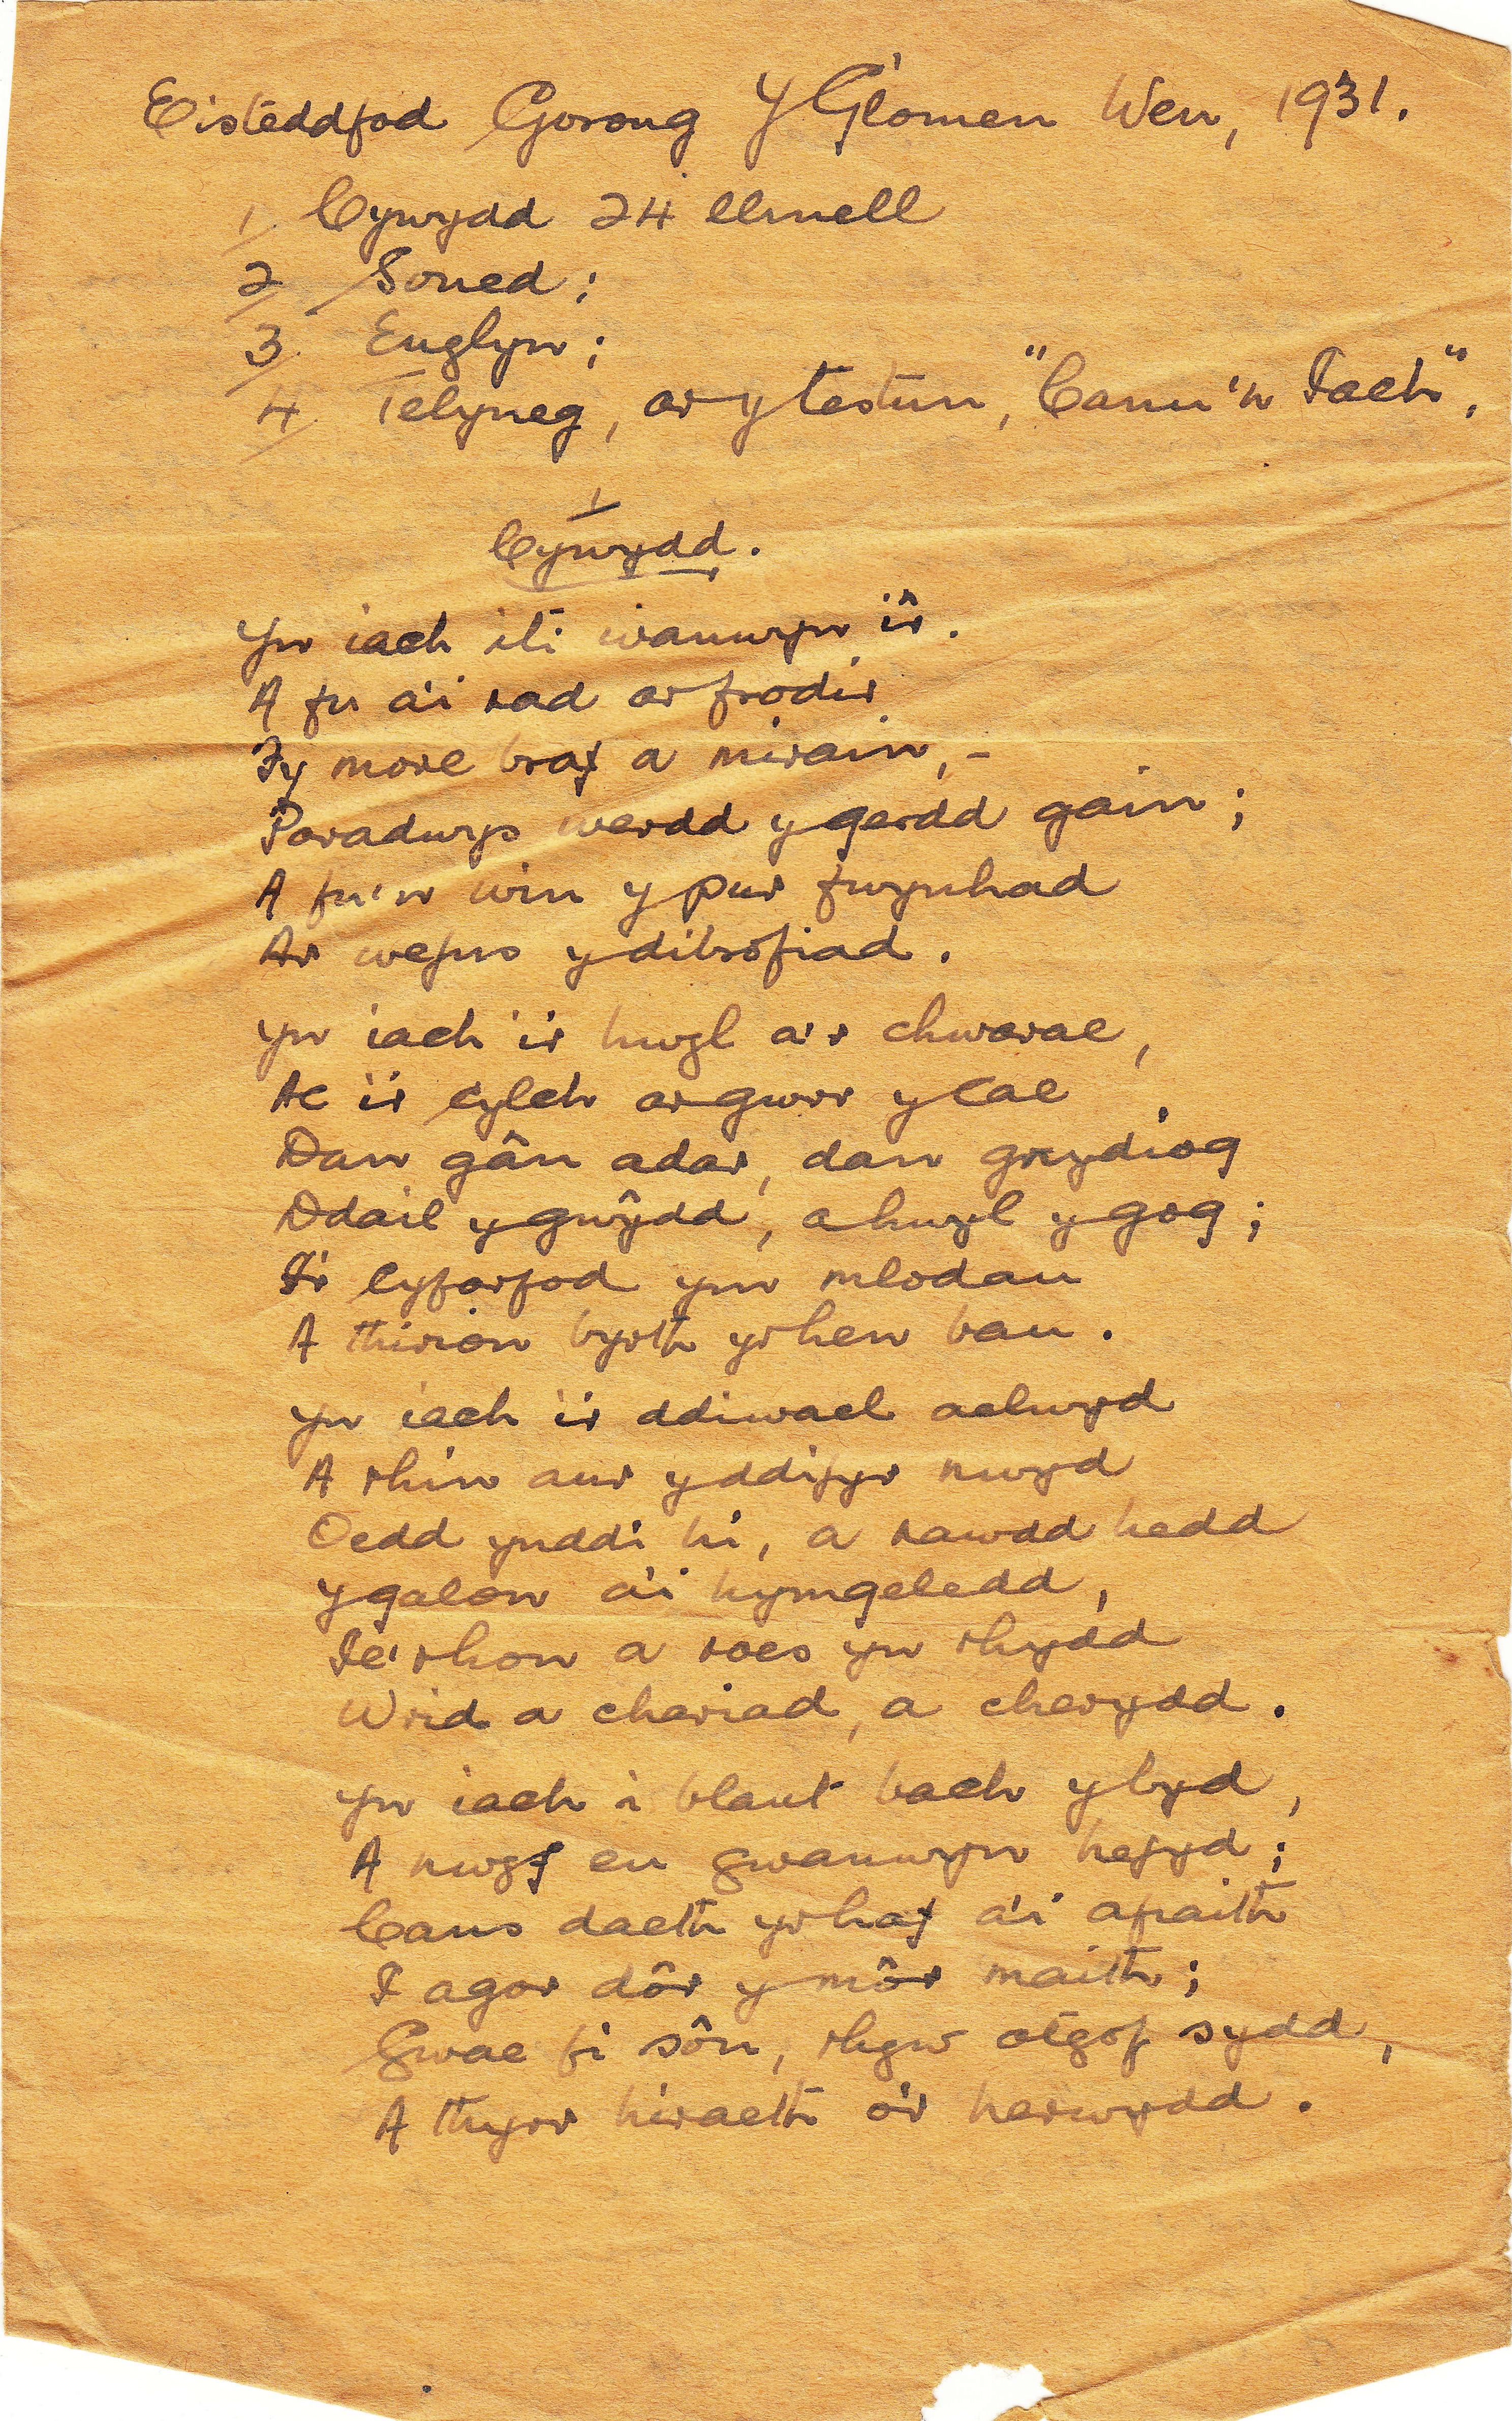 Eisteddfod Gorong Y Glomen Wen, 1931.
1/ Cywydd 24 llinell
2/ Soned;
3/ Englyn;
4/ Telyneg, ar y testun, "Canu'n Iach".
1/
Cywydd.
Yn iach iti wanwyn ir.
A fu a'i rad ar frodir
Fy more braf a mirain, –
Paradwys werdd y gerdd gain;
A fu'n win y pur fwynhad
Ar wefus y dibrofiad.
Yn iach i'r hwyl a'r chwarae,
Ac i'r cylch ar gwrr y cae
Dan gân adar, dan grydiog
Ddail y gwŷdd, a hwyl y gog;
I'r cyfarfod yn mlodau
A thirion byrth yr hen bau.
Yn iach i'r ddiwael aelwyd
A rhin aur y ddifyr nwyd
Oedd ynddi hi, a nawdd hedd
Y galon a'i hymgeledd,
Ie'rhon a roes yn rhydd
Wrid a chariad, a cherydd.
Yn iach i blant bach y byd,
A nwyf eu gwanwyn hefyd;
Cans daeth yr haf a'i afiaith
I agor dôr y môr maith;
Gwae fi sôn, rhyw atgof sydd,
A thyrr hiraeth o'r herwydd.